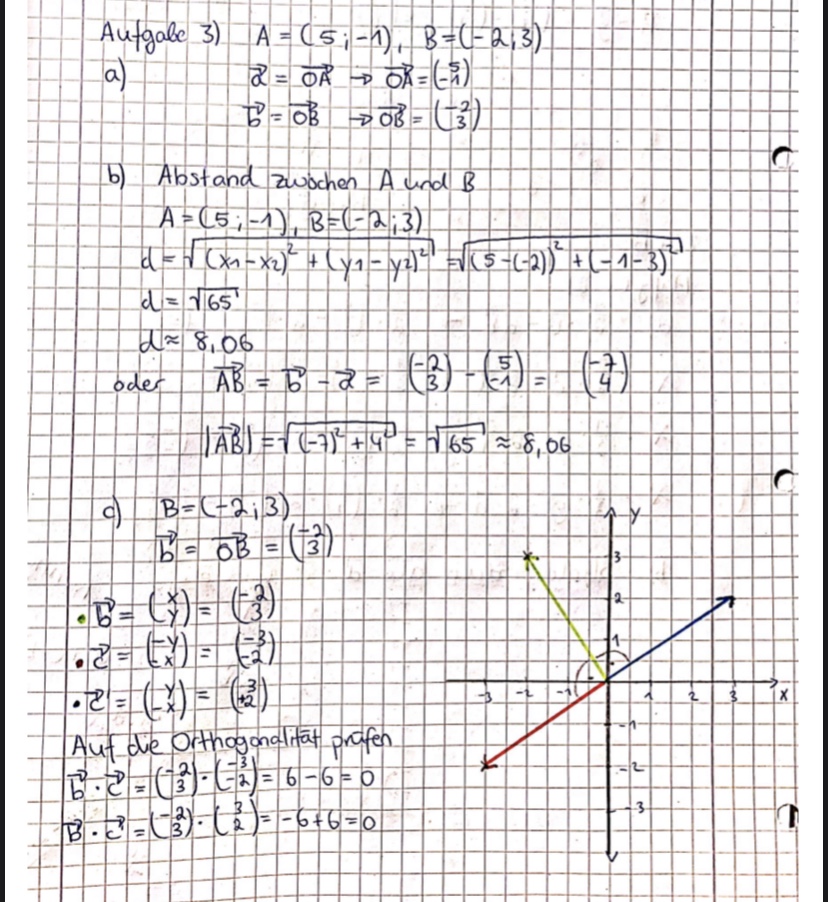 Aufgabe 3) A = (5 ; -1), B = (-2 ; 3)
a) a⃗ = OA⃗ → OA⃗ = (5 -1)
b⃗ = OB⃗ → OB⃗ = (-2 3)
b) Abstand zwischen A und B
A = (5 ; -1), B = (-2 ; 3)
d = √((x1 - x2)² + (y1 - y2)²) = √((5 - (-2))² + (-1 - 3)²)
d = √65
d ≈ 8,06
oder AB⃗ = b⃗ - a⃗ = (-2 3) - (5 -1) = (-7 4)
|AB⃗| = √((-7)² + 4²) = √65 ≈ 8,06
c) B = (-2 ; 3)
b⃗ = OB⃗ = (-2 3)
• b⃗ = (x y) = (-2 3)
• c⃗ = (-y x) = (-3 -2)
• c⃗' = (y -x) = (3 +2)
Auf die Orthogonalität prüfen
b⃗ · c⃗ = (-2 3) · (-3 -2) = 6 - 6 = 0
b⃗ · c⃗' = (-2 3) · (3 2) = -6 + 6 = 0
y
3
2
1
-3 -2 -1 1 2 3 x
-1
-2
-3